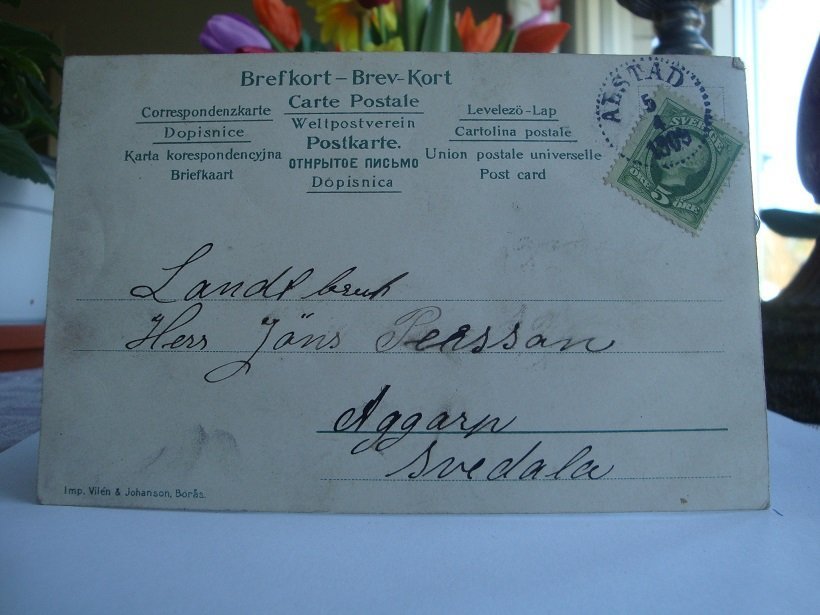 Brefkort – Brev-Kort
Carte Postale
Correspondenzkarte
Levelező-Lap
Weltpostverein
Dopisnice
Cartolina postale
Postkarte.
Karta korespondencyjna
ОТКРЫТОЕ ПИСЬМО
Union postale universelle
Briefkaart
Dopisnica
Post card
ALSTAD
5
4
1905
SVERIGE
ÖRE 5 ÖRE
Landtbruk
Herr Jöns Peerssan
Aggarp
Svedala
Imp. Vilén & Johanson, Borås.